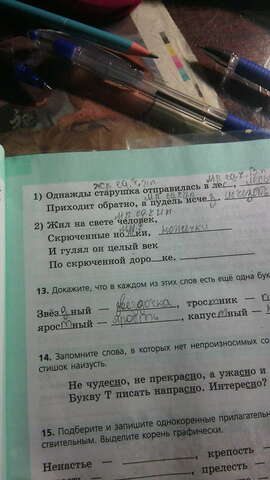 1) Однажды старушка отправилась в ле
Приходит обратно, а пудель исче
2) Жил на свете человек,
Скрюченные но жки,
И гулял он целый век
По скрюченной доро...ке.
13. Докажите, что в каждом из этих слов есть ещё одна бук
Звёз д ный — звездочка, трос т ник —
ярос т ный — ярость, капус т ный —
14. Запомните слова, в которых нет непроизносимых со
стишок наизусть.
Не чудесно, не прекрасно, а ужасно и
Букву Т писать напрасно. Интересно?
15. Подберите и запишите однокоренные прилагатель
ствительным. Выделите корень графически.
Ненастье — , крепость —
— , прелесть —